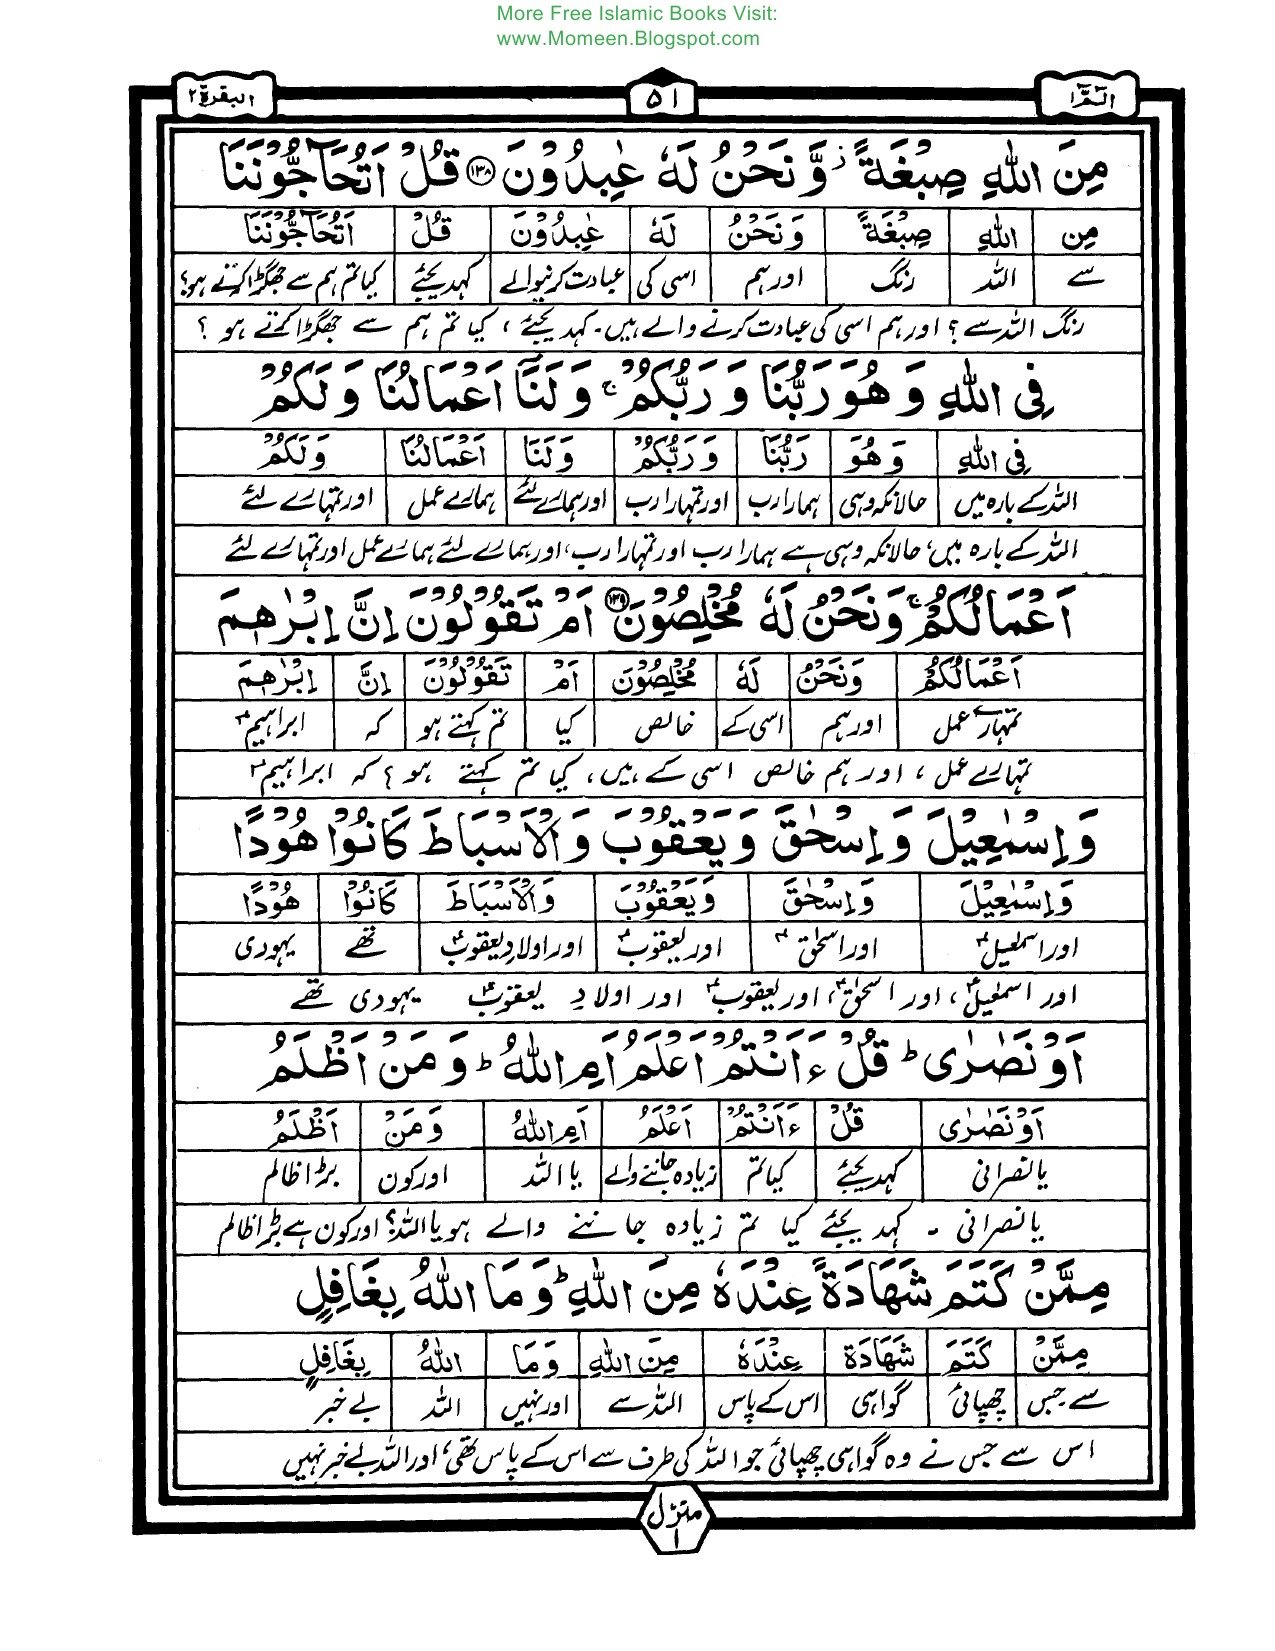 More Free Islamic Books Visit:
www.Momeen.Blogspot.com
الٓمّٓ ۱ ۵۱ البقرة ۲
مِنَ اللّٰهِ صِبْغَةً ۫ وَّ نَحْنُ لَهٗ عٰبِدُوْنَ ۱۳۸ قُلْ اَتُحَآجُّوْنَنَا
مِن اللّٰهِ صِبْغَةً وَنَحْنُ لَهٗ عٰبِدُوْنَ قُلْ اَتُحَآجُّوْنَنَا
سے اللہ رنگ اور ہم اسی کی عبادت کرنیوالے کہدیجئے کیا تم ہم سے جھگڑا کرتے ہو؟
رنگ اللہ سے ؟ اور ہم اسی کی عبادت کرنے والے ہیں۔ کہدیجئے ، کیا تم ہم سے جھگڑا کرتے ہو ؟
فِی اللّٰهِ وَ هُوَ رَبُّنَا وَ رَبُّكُمْ ۚ وَلَنَآ اَعْمَالُنَا وَ لَكُمْ
فِی اللّٰهِ وَ هُوَ رَبُّنَا وَ رَبُّكُمْ وَ لَنَآ اَعْمَالُنَا وَ لَكُمْ
اللہ کے بارہ میں حالانکہ وہی ہمارا رب اور تمہارا رب اور ہمارے لئے ہمارے عمل اور تمہارے لئے
اللہ کے بارہ میں، حالانکہ وہی ہے ہمارا رب اور تمہارا رب، اور ہمارے لئے ہمارے عمل اور تمہارے لئے
اَعْمَالُكُمْ ۚ وَنَحْنُ لَهٗ مُخْلِصُوْنَ ۱۳۹ اَمْ تَقُوْلُوْنَ اِنَّ اِبْرٰهٖمَ
اَعْمَالُكُمْ وَنَحْنُ لَهٗ مُخْلِصُوْنَ اَمْ تَقُوْلُوْنَ اِنَّ اِبْرٰهٖمَ
تمہارے عمل اور ہم اسی کے خالص کیا تم کہتے ہو کہ ابراہیمؑ
تمہارے عمل ، اور ہم خالص اسی کے ہیں، کیا تم کہتے ہو ؟ کہ ابراہیمؑ
وَ اِسْمٰعِيْلَ وَ اِسْحٰقَ وَ يَعْقُوْبَ وَ الْاَسْبَاطَ كَانُوْا هُوْدًا
وَ اِسْمٰعِيْلَ وَ اِسْحٰقَ وَ يَعْقُوْبَ وَ الْاَسْبَاطَ كَانُوْا هُوْدًا
اور اسمٰعیلؑ اور اسحٰقؑ اور یعقوبؑ اور اولادِ یعقوبؑ تھے یہودی
اور اسمٰعیلؑ، اور اسحٰقؑ، اور یعقوبؑ اور اولادِ یعقوبؑ یہودی تھے
اَوْ نَصٰرٰى ؕ قُلْ ءَاَنْتُمْ اَعْلَمُ اَمِ اللّٰهُ ؕ وَ مَنْ اَظْلَمُ
اَوْ نَصٰرٰى قُلْ ءَاَنْتُمْ اَعْلَمُ اَمِ اللّٰهُ وَ مَنْ اَظْلَمُ
یا نصرانی کہدیجئے کیا تم زیادہ جاننے والے یا اللہ اور کون بڑا ظالم
یا نصرانی ۔ کہدیجئے کیا تم زیادہ جاننے والے ہو یا اللہ؟ اور کون ہے بڑا ظالم
مِمَّنْ كَتَمَ شَهَادَةً عِنْدَهٗ مِنَ اللّٰهِ ؕ وَ مَا اللّٰهُ بِغَافِلٍ
مِمَّنْ كَتَمَ شَهَادَةً عِنْدَهٗ مِنَ اللّٰهِ وَ مَا اللّٰهُ بِغَافِلٍ
سے جس چھپائی گواہی اس کے پاس اللہ سے اور نہیں اللہ بے خبر
اس سے جس نے وہ گواہی چھپائی جو اللہ کی طرف سے اس کے پاس تھی، اور اللہ بے خبر نہیں
منزل ۱